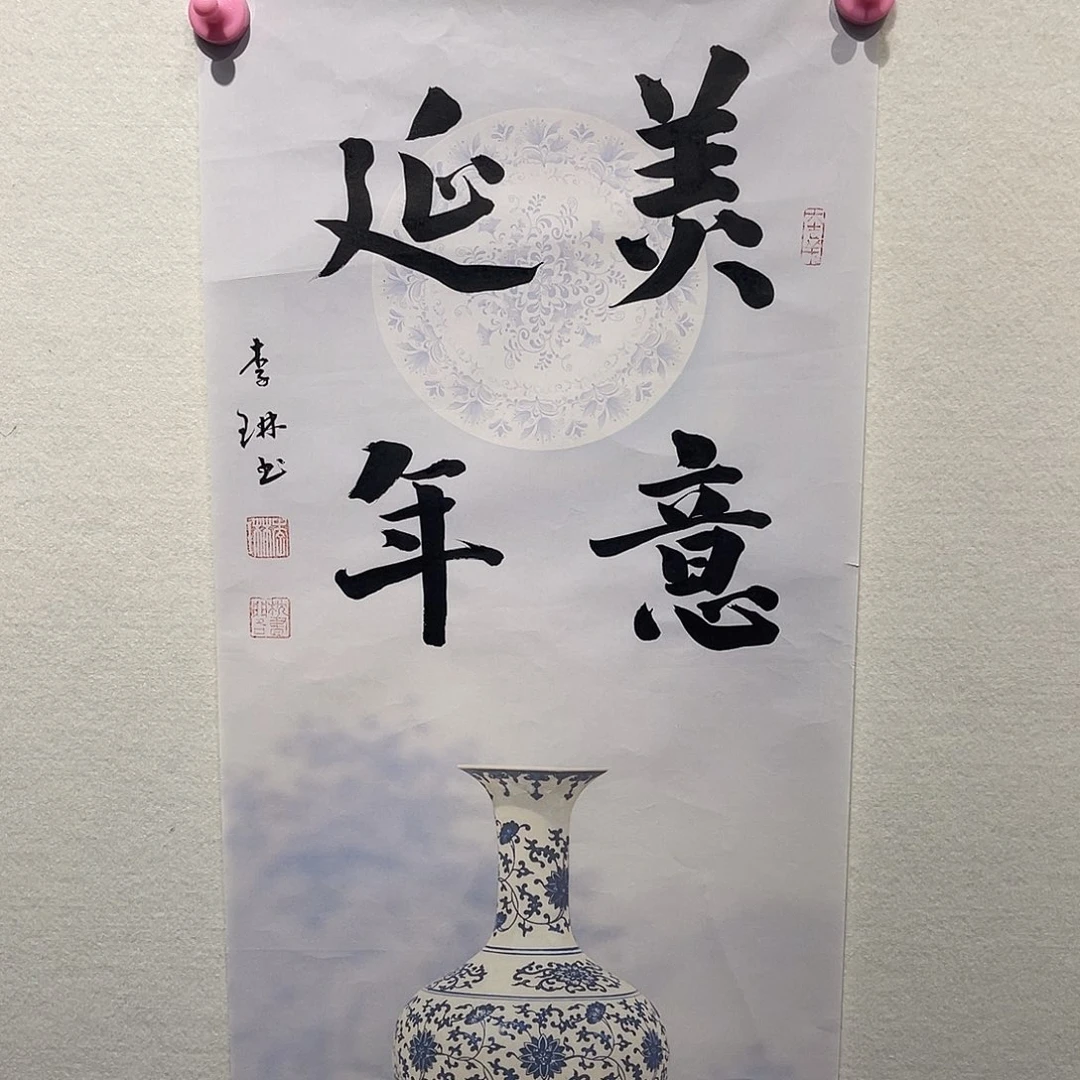 美意
延年
李琳书